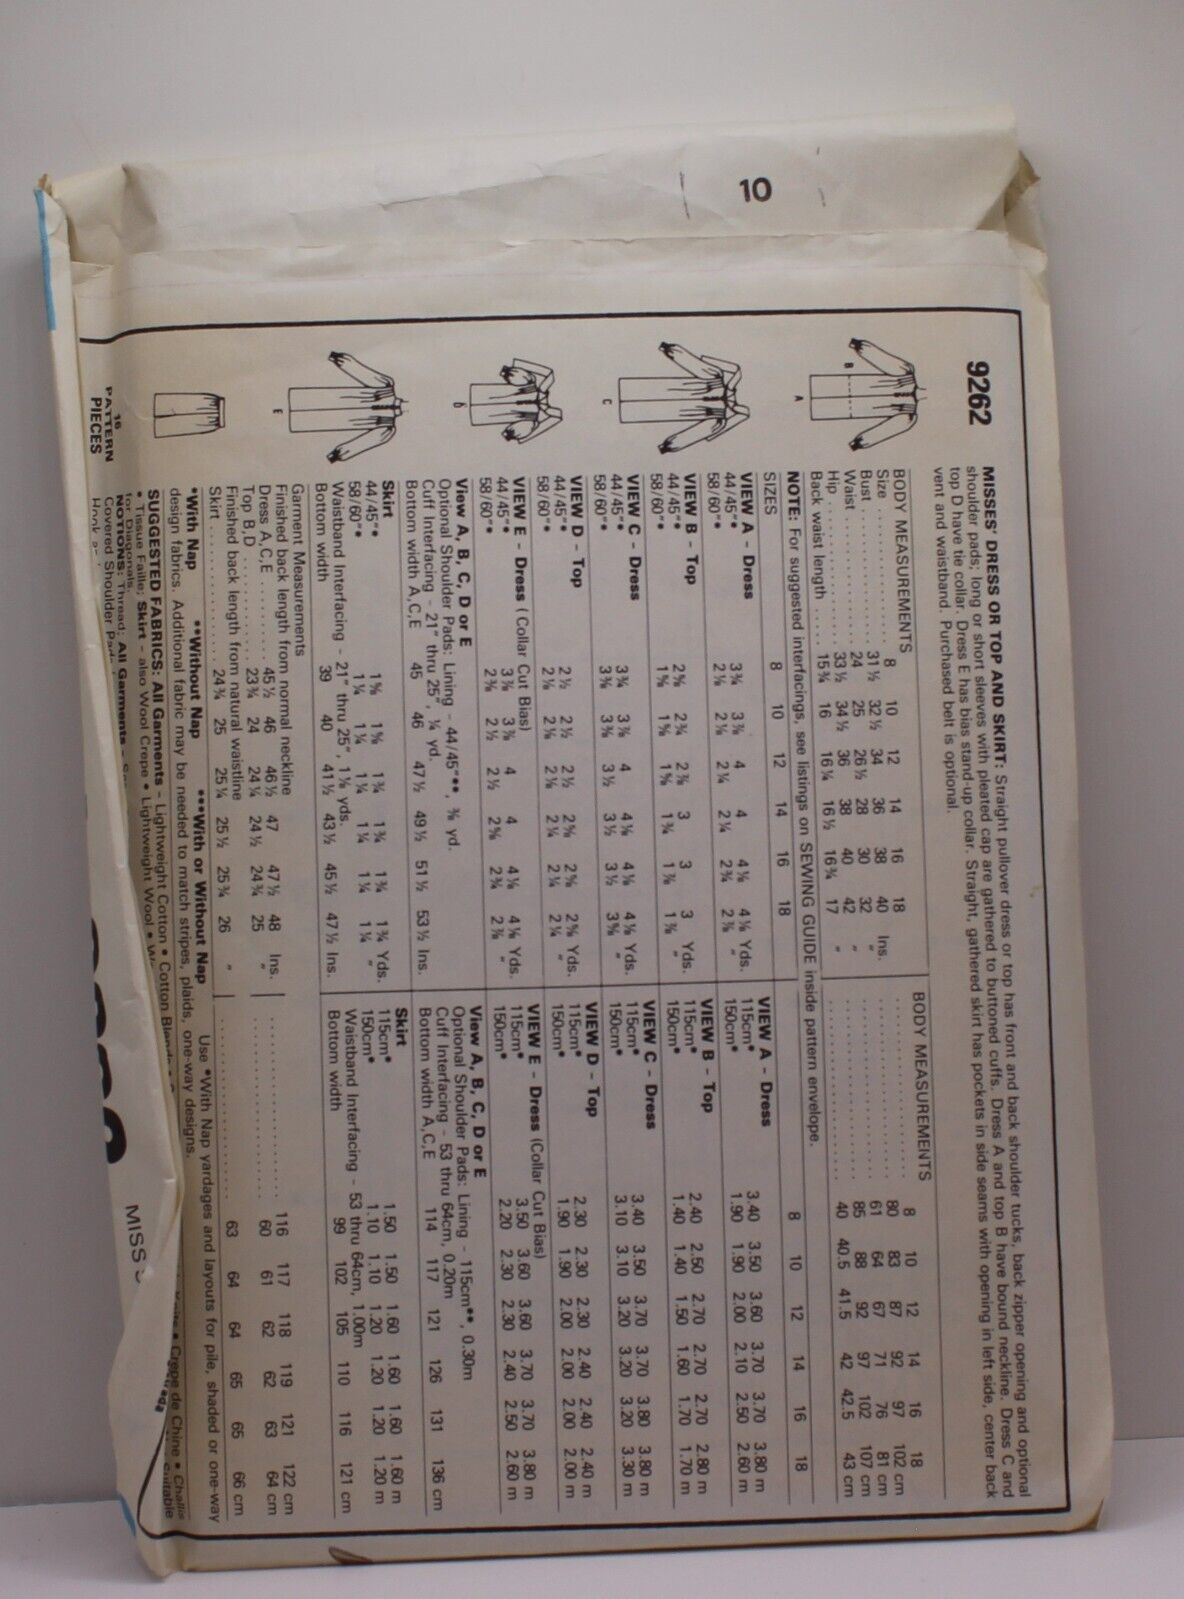 10
9262
MISSES' DRESS OR TOP AND SKIRT: Straight pullover dress or top has front and back shoulder tucks, back zipper opening and optional
shoulder pads; long or short sleeves with pleated cap are gathered to buttoned cuffs. Dress A and top B have bound neckline. Dress C and
top D have tie collar. Dress E has bias stand-up collar. Straight, gathered skirt has pockets in side seams with opening in left side, center back
vent and waistband. Purchased belt is optional.
B
A
C
D
E
16
PATTERN
PIECES
BODY MEASUREMENTS
Size 8 10 12 14 16 18
Bust 31½ 32½ 34 36 38 40 Ins.
Waist 24 25 26½ 28 30 32 "
Hip 33½ 34½ 36 38 40 42 "
Back waist length 15¾ 16 16¼ 16½ 16¾ 17 "
BODY MEASUREMENTS
8 10 12 14 16 18
80 83 87 92 97 102 cm
61 64 67 71 76 81 cm
85 88 92 97 102 107 cm
40 40.5 41.5 42 42.5 43 cm
NOTE: For suggested interfacings, see listings on SEWING GUIDE inside pattern envelope.
SIZES 8 10 12 14 16 18
8 10 12 14 16 18
VIEW A - Dress
44/45"* 3¾ 3⅞ 4 4 4⅛ 4⅛ Yds.
58/60"* 2⅛ 2⅛ 2¼ 2¼ 2¾ 2⅞ "
VIEW A - Dress
115cm* 3.40 3.50 3.60 3.70 3.70 3.80 m
150cm* 1.90 1.90 2.00 2.10 2.50 2.60 m
VIEW B - Top
44/45"* 2⅝ 2¾ 2⅞ 3 3 3 Yds.
58/60"* 1⅝ 1⅝ 1⅝ 1¾ 1⅞ 1⅞ "
VIEW B - Top
115cm* 2.40 2.50 2.70 2.70 2.70 2.80 m
150cm* 1.40 1.40 1.50 1.60 1.70 1.70 m
VIEW C - Dress
44/45"* 3¾ 3⅞ 4 4⅛ 4⅛ 4⅛ Yds.
58/60"* 3⅜ 3⅜ 3½ 3½ 3½ 3⅝ "
VIEW C - Dress
115cm* 3.40 3.50 3.70 3.70 3.80 3.80 m
150cm* 3.10 3.10 3.20 3.20 3.20 3.30 m
VIEW D - Top
44/45"* 2½ 2½ 2½ 2⅝ 2⅝ 2⅝ Yds.
58/60"* 2⅛ 2⅛ 2⅛ 2¼ 2¼ 2¼ "
VIEW D - Top
115cm* 2.30 2.30 2.30 2.40 2.40 2.40 m
150cm* 1.90 1.90 2.00 2.00 2.00 2.00 m
VIEW E - Dress (Collar Cut Bias)
44/45"* 3⅞ 3⅞ 4 4 4⅛ 4⅛ Yds.
58/60"* 2⅜ 2½ 2½ 2⅝ 2¾ 2⅞ "
VIEW E - Dress (Collar Cut Bias)
115cm* 3.50 3.60 3.60 3.70 3.70 3.80 m
150cm* 2.20 2.30 2.30 2.40 2.50 2.60 m
View A, B, C, D or E
Optional Shoulder Pads: Lining - 44/45"**, ⅜ yd.
Cuff Interfacing - 21" thru 25", ¼ yd.
Bottom width A,C,E 45 46 47½ 49½ 51½ 53½ Ins.
View A, B, C, D or E
Optional Shoulder Pads: Lining - 115cm**, 0.30m
Cuff Interfacing - 53 thru 64cm, 0.20m
Bottom width A,C,E 114 117 121 126 131 136 cm
Skirt
44/45"* 1⅝ 1⅝ 1¾ 1¾ 1¾ 1¾ Yds.
58/60"* 1¼ 1¼ 1¼ 1¼ 1¼ 1¼ "
Waistband Interfacing - 21" thru 25", 1⅛ yds.
Bottom width 39 40 41½ 43½ 45½ 47½ Ins.
Skirt
115cm* 1.50 1.50 1.60 1.60 1.60 1.60 m
150cm* 1.10 1.10 1.20 1.20 1.20 1.20 m
Waistband Interfacing - 53 thru 64cm, 1.00m
Bottom width 99 102 105 110 116 121 cm
Garment Measurements
Finished back length from normal neckline
Dress A,C,E 45½ 46 46½ 47 47½ 48 Ins.
Top B,D 23¾ 24 24¼ 24½ 24¾ 25 "
Finished back length from natural waistline
Skirt 24¾ 25 25¼ 25½ 25¾ 26 "
116 117 118 119 121 122 cm
60 61 62 62 63 64 cm
63 64 64 65 65 66 cm
*With Nap **Without Nap ***With or Without Nap Use *With Nap yardages and layouts for pile, shaded or one-way
design fabrics. Additional fabric may be needed to match stripes, plaids, one-way designs.
SUGGESTED FABRICS: All Garments - Lightweight Cotton • Cotton Blends • Crepe de Chine • Challis
• Tissue Faille; Skirt - also Wool Crepe • Lightweight Wool Suitable
for Diagonals.
NOTIONS: Thread; All Garments
Covered Shoulder
MISS